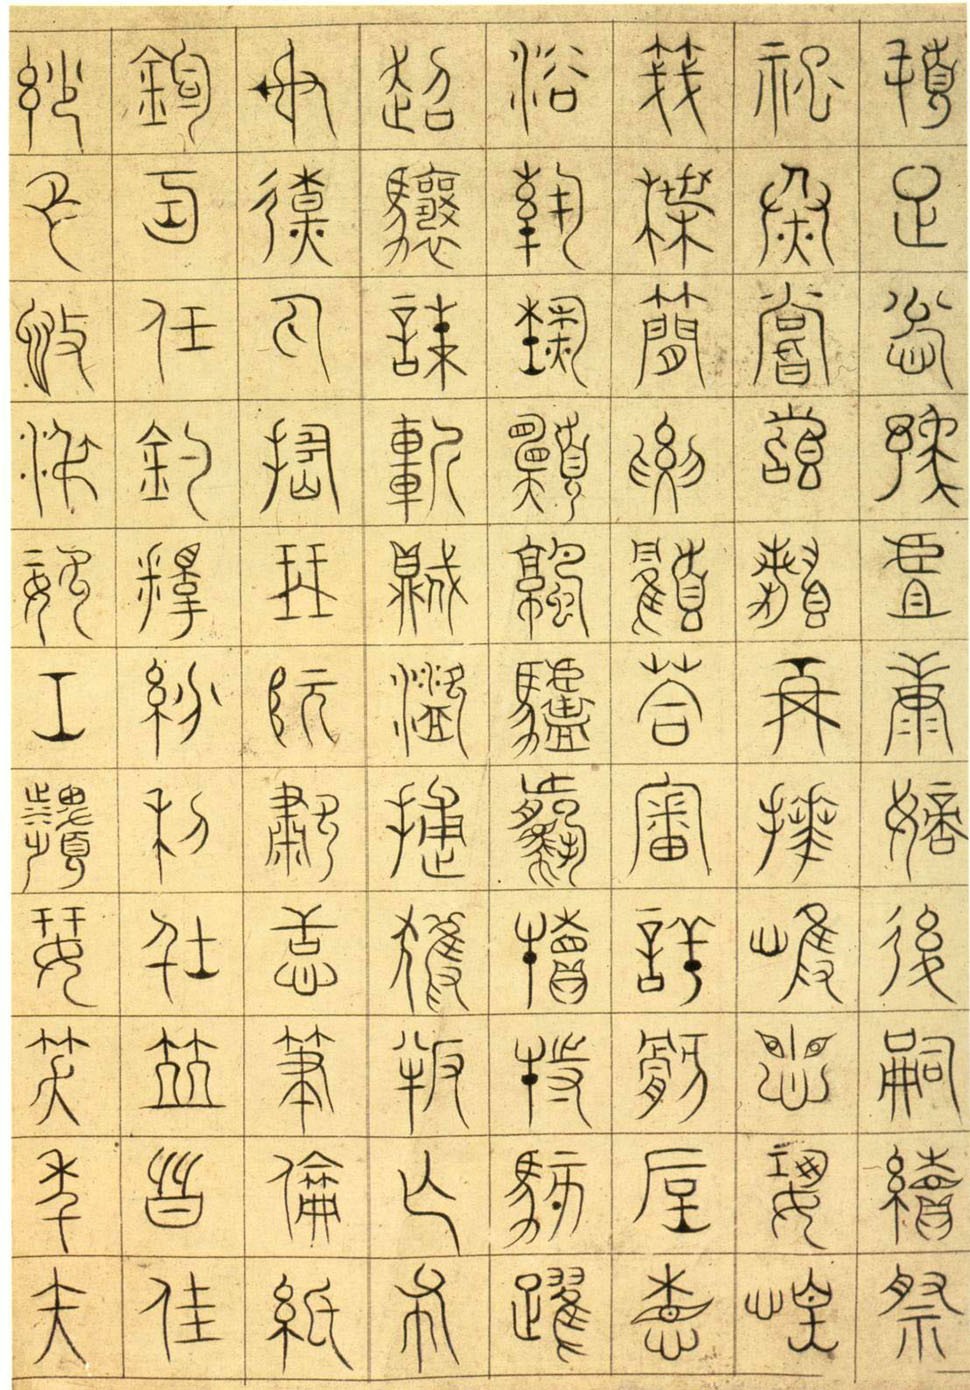 頓足悅豫且康嫡後嗣續祭
祀蒸嘗稽顙再拜悚懼恐惶
牋牒簡要顧答審詳骸垢想
浴執熱願涼驢騾犢特駭躍
超驤誅斬賊盜捕獲叛亡布
射遼丸嵇琴阮嘯恬筆倫紙
鈞巧任釣釋紛利俗並皆佳
妙毛施淑姿工顰妍笑年矢